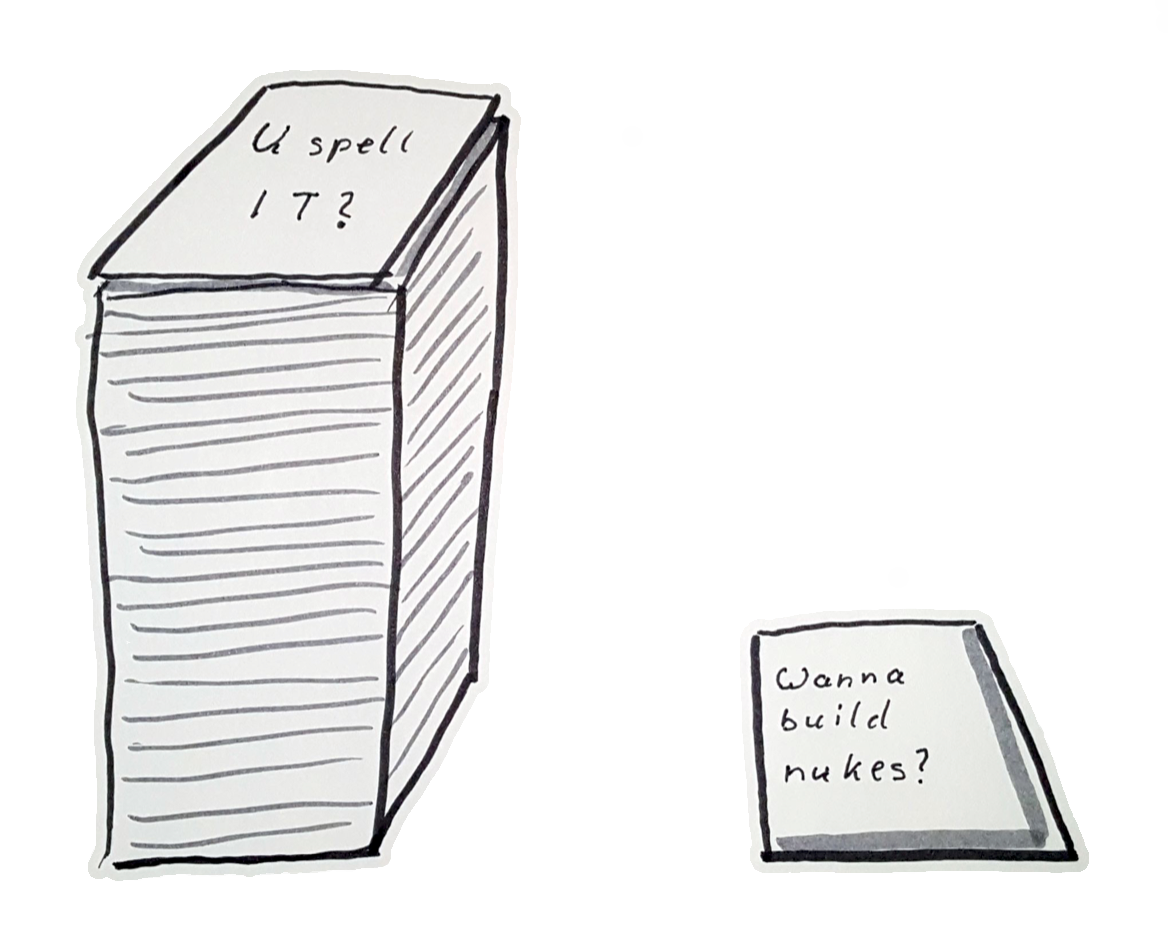 U spell
IT?
Wanna
build
nukes?